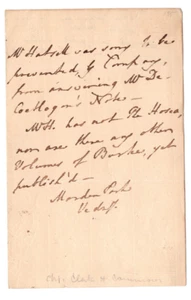 Mr Hatsell was sorry to be
prevented, by Company,
from answering Mr De-
Coetlogon's Note —
Mr H. has not The House,
nor are there any other
Volumes of Burke, yet
publish'd —
Morden Park